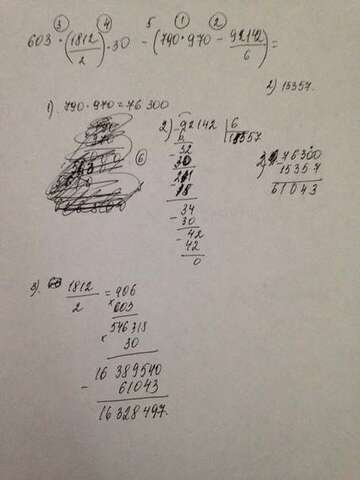 ③ ④ 5 ① ②
603 · (1812/2) · 30 - (790·970 - 92142/6) =
2) 15357.
1). 790·970 = 76 300
2) 92142 | 6
6 15357
32
30
21
18
34
- 30
- 42
42
0
76300
15357
61043
⑥
3). 1812/2 = 906
× 603
546318
× 30
16 389540
- 61043
16 328497.